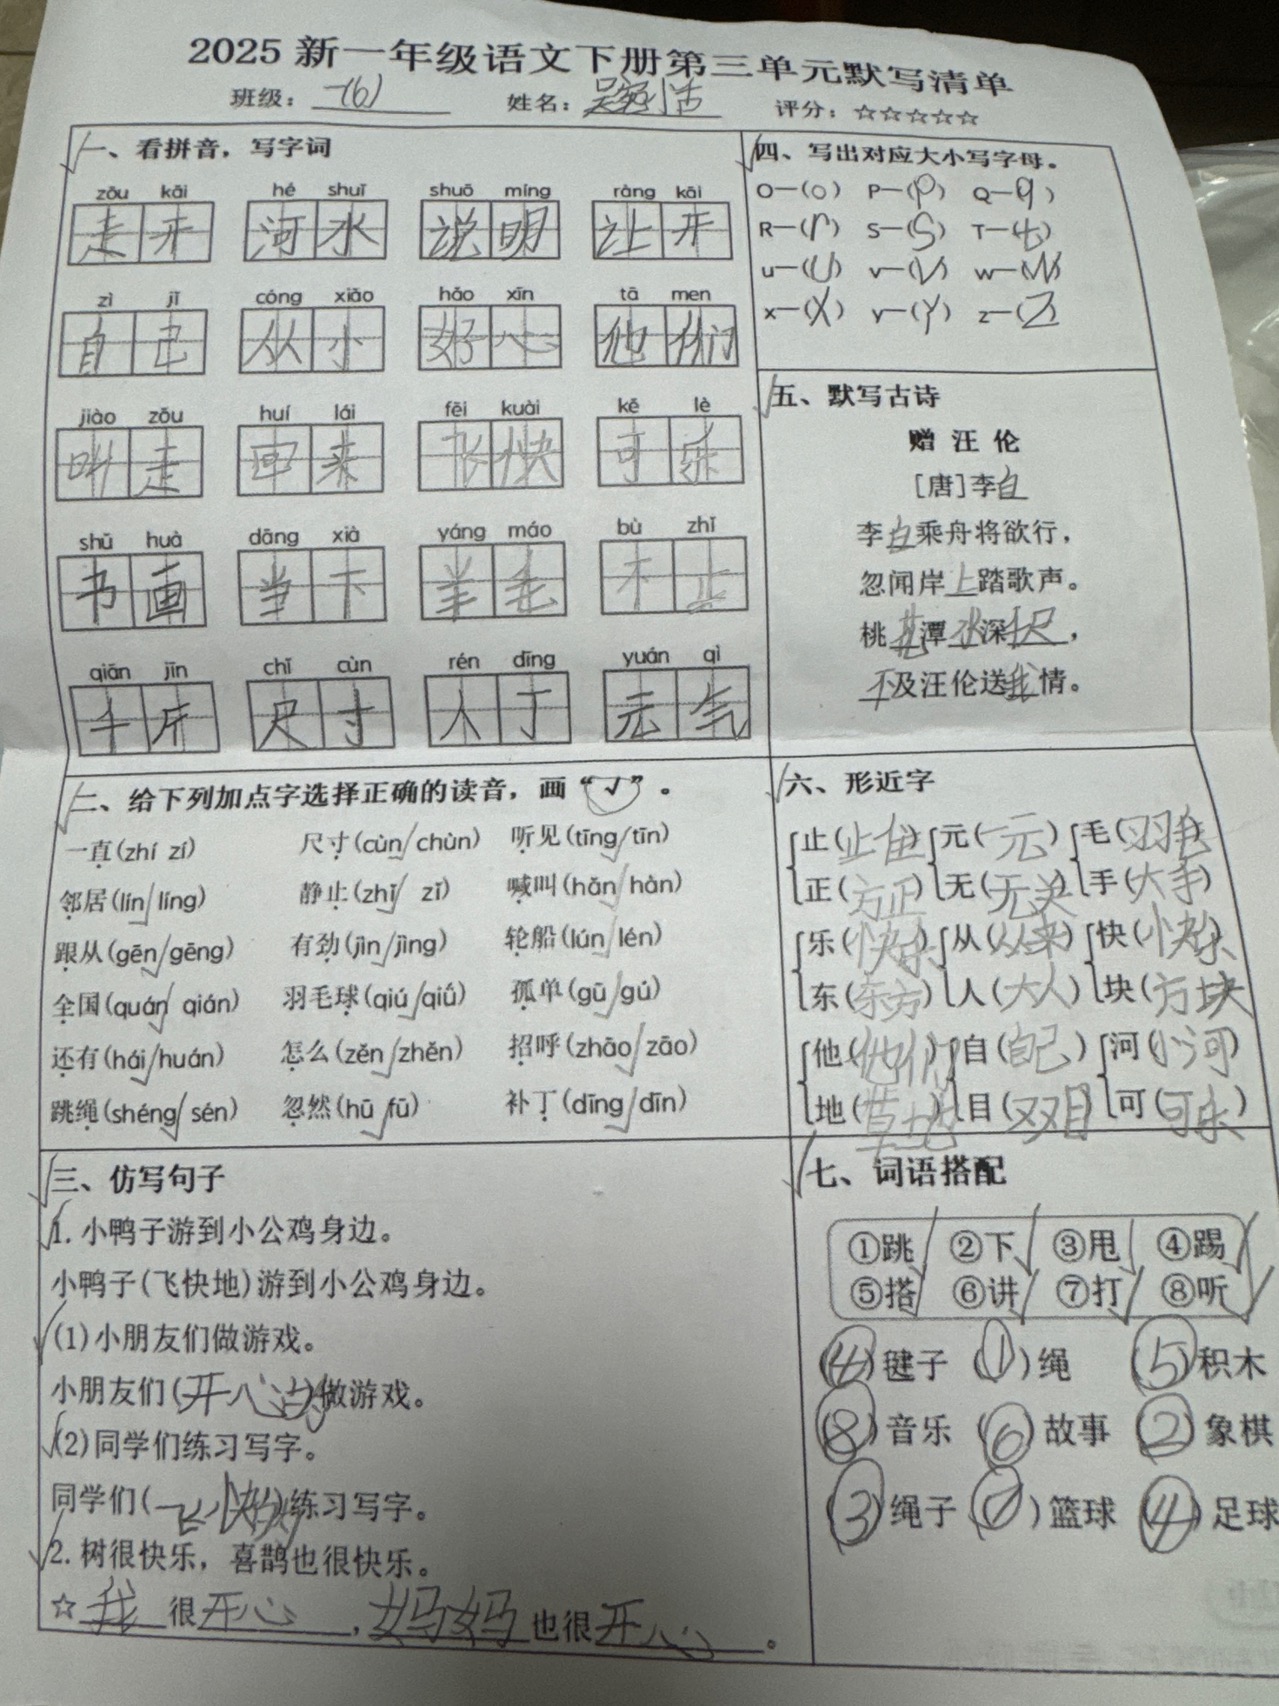 2025新一年级语文下册第三单元默写清单
班级：一(6) 姓名： 评分：☆☆☆☆☆
一、看拼音，写字词
zǒu kāi hé shuǐ shuō míng ràng kāi
走开 河水 说明 让开
zì jǐ cóng xiǎo hǎo xīn tā men
自己 从小 好心 他们
jiào zǒu huí lái fēi kuài kě lè
叫走 回来 飞快 可乐
shū huà dāng xià yáng máo bù zhǐ
书画 当下 羊毛 不止
qiān jīn chǐ cùn rén dīng yuán qì
千斤 尺寸 人丁 元气
二、给下列加点字选择正确的读音，画“√”。
一直(zhí zí) 尺寸(cùn/chùn) 听见(tīng/tīn)
邻居(lín/líng) 静止(zhǐ/ zǐ) 喊叫(hǎn/hàn)
跟从(gēn/gēng) 有劲(jìn/jìng) 轮船(lún/lén)
全国(quán/qián) 羽毛球(qiú/qiǘ) 孤单(gū/gú)
还有(hái/huán) 怎么(zěn/zhěn) 招呼(zhāo/zāo)
跳绳(shéng/sén) 忽然(hū/fū) 补丁(dīng/dīn)
三、仿写句子
1.小鸭子游到小公鸡身边。
小鸭子(飞快地)游到小公鸡身边。
(1)小朋友们做游戏。
小朋友们(开心的)做游戏。
(2)同学们练习写字。
同学们(飞快的)练习写字。
2.树很快乐，喜鹊也很快乐。
☆我很开心，妈妈也很开心。
四、写出对应大小写字母。
O—(o) P—(p) Q—(q)
R—(r) S—(s) T—(t)
u—(U) v—(V) w—(W)
x—(X) y—(Y) z—(Z)
五、默写古诗
赠汪伦
[唐]李白
李白乘舟将欲行，
忽闻岸上踏歌声。
桃花潭水深千尺，
不及汪伦送我情。
六、形近字
止(止住) 元(一元) 毛(羽毛)
正(方正) 无(无关) 手(大手)
乐(快乐) 从(从来) 快(快乐)
东(东方) 人(大人) 块(方块)
他(他们) 自(自己) 河(小河)
地(草地) 目(双目) 可(可乐)
七、词语搭配
①跳 ②下 ③甩 ④踢
⑤搭 ⑥讲 ⑦打 ⑧听
(4)毽子 (1)绳 (5)积木
(8)音乐 (6)故事 (2)象棋
(3)绳子 (7)篮球 (4)足球